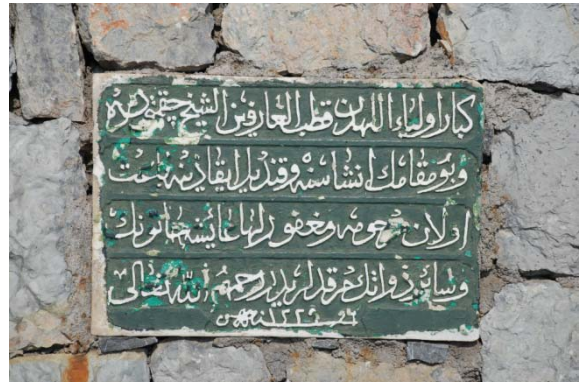 كبار اولياء اللهدن قطب العارفين الشيخ
وبو مقامك انشاسنه وقنديل ايقادينه
اولان مرحومه ومغفور لها عايشه خاتونك
وسائر ذواتك مرقدلريدر رحمهم الله تعالى
١٢٢